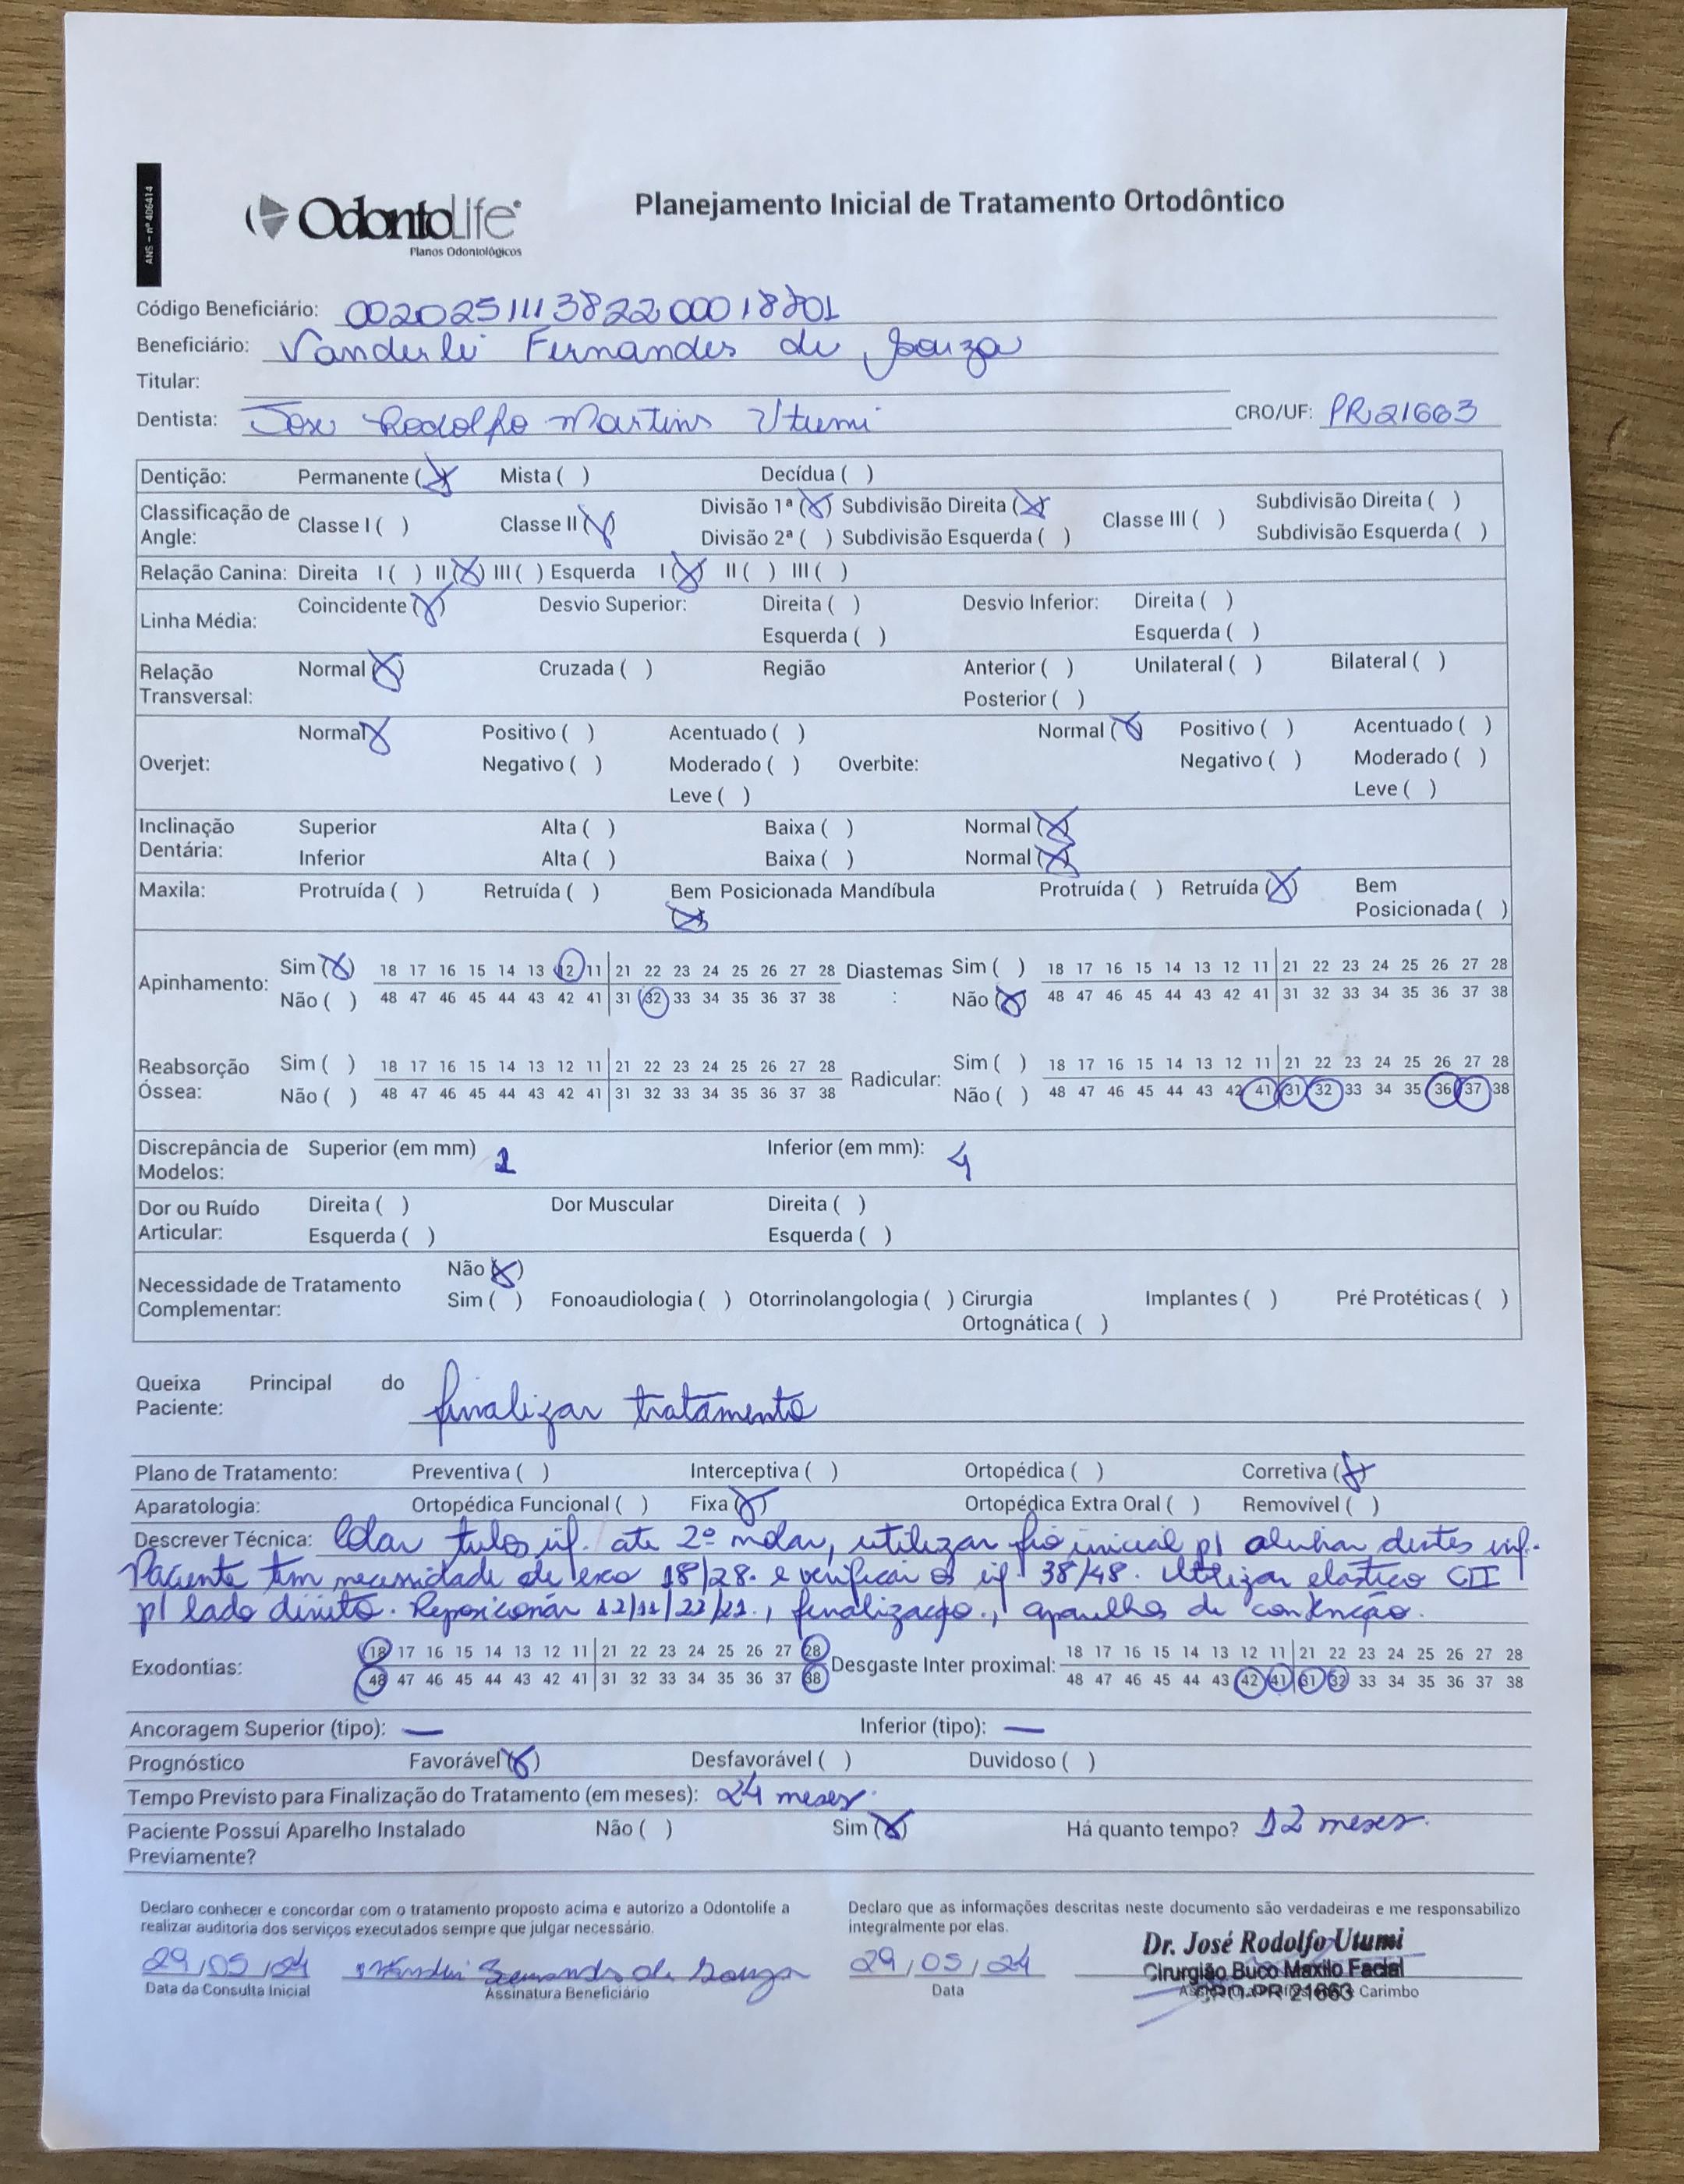 ANS - nº 406414
OdontoLife®
Planos Odontológicos
Planejamento Inicial de Tratamento Ortodôntico
Código Beneficiário: 002025111382200018801
Beneficiário: Vanderlei Fernandes de Souza
Titular:
Dentista: Jose Rodolfo Martins Utumi CRO/UF: PR21663
Dentição: Permanente (X) Mista ( ) Decídua ( )
Classificação de Angle: Classe I ( ) Classe II (X) Divisão 1ª (X) Subdivisão Direita (X) Classe III ( ) Subdivisão Direita ( )
Divisão 2ª ( ) Subdivisão Esquerda ( ) Subdivisão Esquerda ( )
Relação Canina: Direita I ( ) II (X) III ( ) Esquerda I (X) II ( ) III ( )
Linha Média: Coincidente (X) Desvio Superior: Direita ( ) Desvio Inferior: Direita ( )
Esquerda ( ) Esquerda ( )
Relação Transversal: Normal (X) Cruzada ( ) Região Anterior ( ) Unilateral ( ) Bilateral ( )
Posterior ( )
Overjet: Normal X Positivo ( ) Acentuado ( ) Overbite: Normal (X) Positivo ( ) Acentuado ( )
Negativo ( ) Moderado ( ) Negativo ( ) Moderado ( )
Leve ( ) Leve ( )
Inclinação Dentária: Superior Alta ( ) Baixa ( ) Normal (X)
Inferior Alta ( ) Baixa ( ) Normal (X)
Maxila: Protruída ( ) Retruída ( ) Bem Posicionada (X) Mandíbula Protruída ( ) Retruída (X) Bem Posicionada ( )
Apinhamento: Sim (X) 18 17 16 15 14 13 12 11 21 22 23 24 25 26 27 28 Diastemas: Sim ( ) 18 17 16 15 14 13 12 11 21 22 23 24 25 26 27 28
Não ( ) 48 47 46 45 44 43 42 41 31 32 33 34 35 36 37 38 Não (X) 48 47 46 45 44 43 42 41 31 32 33 34 35 36 37 38
Reabsorção Óssea: Sim ( ) 18 17 16 15 14 13 12 11 21 22 23 24 25 26 27 28 Radicular: Sim ( ) 18 17 16 15 14 13 12 11 21 22 23 24 25 26 27 28
Não ( ) 48 47 46 45 44 43 42 41 31 32 33 34 35 36 37 38 Não ( ) 48 47 46 45 44 43 42 41 31 32 33 34 35 36 37 38
Discrepância de Modelos: Superior (em mm) 2 Inferior (em mm): 4
Dor ou Ruído Articular: Direita ( ) Dor Muscular Direita ( )
Esquerda ( ) Esquerda ( )
Necessidade de Tratamento Complementar: Não (X)
Sim ( ) Fonoaudiologia ( ) Otorrinolangologia ( ) Cirurgia Ortognática ( ) Implantes ( ) Pré Protéticas ( )
Queixa Principal do Paciente: finalizar tratamento
Plano de Tratamento: Preventiva ( ) Interceptiva ( ) Ortopédica ( ) Corretiva (X)
Aparatologia: Ortopédica Funcional ( ) Fixa (X) Ortopédica Extra Oral ( ) Removível ( )
Descrever Técnica: Colar tubos inf. ate 2º molar, utilizar fio inicial p/ alinhar dentes inf.
Paciente tem necessidade de exo 18/28. e verificar os inf 38/48. Utilizar elastico CII
p/ lado direito. Reposicionar 12/11/22/21., finalização., aparelhos de contenção.
Exodontias: 18 17 16 15 14 13 12 11 21 22 23 24 25 26 27 28 Desgaste Inter proximal: 18 17 16 15 14 13 12 11 21 22 23 24 25 26 27 28
48 47 46 45 44 43 42 41 31 32 33 34 35 36 37 38 48 47 46 45 44 43 42 41 31 32 33 34 35 36 37 38
Ancoragem Superior (tipo): — Inferior (tipo): —
Prognóstico Favorável (X) Desfavorável ( ) Duvidoso ( )
Tempo Previsto para Finalização do Tratamento (em meses): 24 meses.
Paciente Possui Aparelho Instalado Previamente? Não ( ) Sim (X) Há quanto tempo? 12 meses.
Declaro conhecer e concordar com o tratamento proposto acima e autorizo a Odontolife a
realizar auditoria dos serviços executados sempre que julgar necessário.
Declaro que as informações descritas neste documento são verdadeiras e me responsabilizo
integralmente por elas.
29/05/24 Vanderlei Fernandes de Souza 29/05/24
Dr. José Rodolfo Utumi
Cirurgião Buco Maxilo Facial
CRO-PR 21663
Data da Consulta Inicial Assinatura Beneficiário Data Carimbo